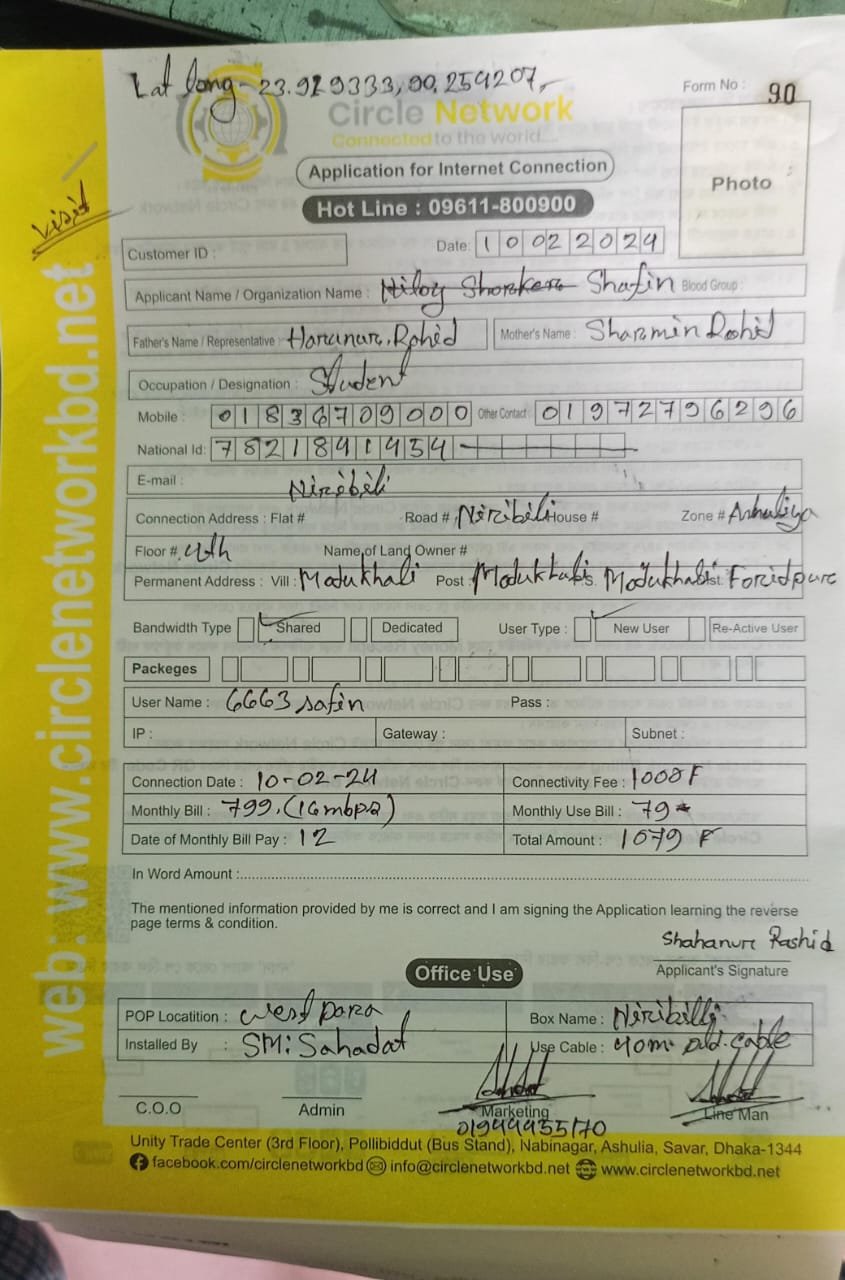 Lat long - 23.929333, 90.254207,
Form No : 90
Circle Network
Connected to the world...
Application for Internet Connection
Photo
Hot Line : 09611-800900
Visit
web: www.circlenetworkbd.net
Customer ID :
Date: 10022024
Applicant Name / Organization Name : Shafin Blood Group :
Father's Name / Representative : Harunur, Rohid Mother's Name : Sharmin Rohid
Occupation / Designation : Student
Mobile : 01836709000 Other Contact : 01972796296
National Id: 7821841454
E-mail :
Niribili
Connection Address : Flat # Road # Niribili House # Zone # Ashuliya
Floor # 4th Name of Land Owner #
Permanent Address : Vill : Modukhali Post : Modukhali P.S. Modukhali Dist. Foridpure
Bandwidth Type Shared Dedicated User Type : New User Re-Active User
Packeges
User Name : 6663safin Pass :
IP : Gateway : Subnet :
Connection Date : 10-02-24 Connectivity Fee : 1000F
Monthly Bill : 799. (16mbps) Monthly Use Bill : 79
Date of Monthly Bill Pay : 12 Total Amount : 1079 F
In Word Amount :
The mentioned information provided by me is correct and I am signing the Application learning the reverse
page terms & condition.
Shahanur Rashid
Applicant's Signature
Office Use
POP Locatition : West para Box Name : Niribilli
Installed By : SM: Sahadat Use Cable : 40m. old. cable
C.O.O Admin Marketing Line Man
01944455170
Unity Trade Center (3rd Floor), Pollibiddut (Bus Stand), Nabinagar, Ashulia, Savar, Dhaka-1344
facebook.com/circlenetworkbd info@circlenetworkbd.net www.circlenetworkbd.net